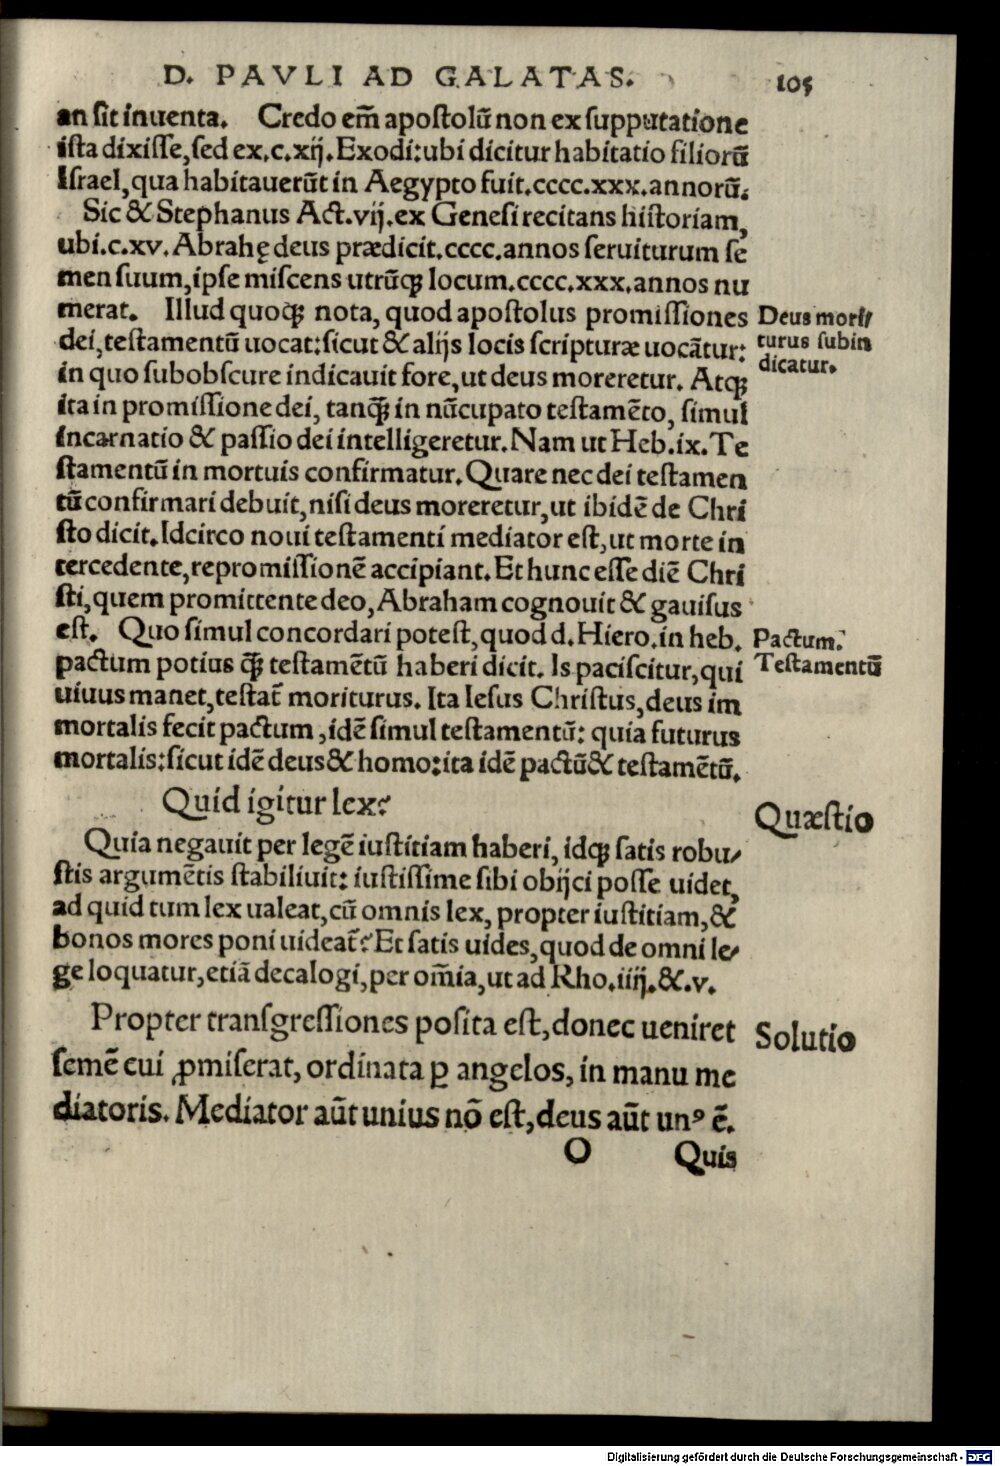 D. PAVLI AD GALATAS. 105
an sit inuenta. Credo em̃ apostolũ non ex supputatione
ista dixisse, sed ex.c.xij.Exodi:ubi dicitur habitatio filiorũ
Israel, qua habitauerũt in Aegypto fuit.cccc.xxx.annorũ.
Sic & Stephanus Act.vij.ex Genesi recitans historiam,
ubi.c.xv.Abrahę deus prædicit.cccc.annos seruiturum se
men suum, ipse miscens utrũq; locum.cccc.xxx.annos nu
merat. Illud quoq; nota, quod apostolus promissiones
dei, testamentũ uocat: sicut & alijs locis scripturæ uocãtur:
in quo subobscure indicauit fore, ut deus moreretur. Atq;
ita in promissione dei, tanq̃ in nũcupato testamẽto, simul
incarnatio & passio dei intelligeretur. Nam ut Heb.ix.Te
stamentũ in mortuis confirmatur. Quare nec dei testamen
tũ confirmari debuit, nisi deus moreretur, ut ibidẽ de Chri
sto dicit. Idcirco noui testamenti mediator est, ut morte in
tercedente, repromissionẽ accipiant. Et hunc esse diẽ Chri
sti, quem promittente deo, Abraham cognouit & gauisus
est. Quo simul concordari potest, quod d.Hiero.in heb.
pactum potius q̃ testamẽtũ haberi dicit. Is paciscitur, qui
uiuus manet, testat̃ moriturus. Ita Iesus Christus, deus im
mortalis fecit pactum, idẽ simul testamentũ: quia futurus
mortalis: sicut idẽ deus & homo: ita idẽ pactũ & testamẽtũ.
Deus mori/
turus subin
dicatur.
Pactum.
Testamentũ
Quid igitur lex?
Quæstio
Quia negauit per legẽ iustitiam haberi, idq; satis robu/
stis argumẽtis stabiliuit: iustissime sibi obijci posse uidet,
ad quid tum lex ualeat, cũ omnis lex, propter iustitiam, &
bonos mores poni uideat̃? Et satis uides, quod de omni le/
ge loquatur, etiã decalogi, per om̃ia, ut ad Rho.iiij.&.v.
Propter transgressiones posita est, donec ueniret
Solutio
semẽ cui ꝓmiserat, ordinata ꝑ angelos, in manu me
diatoris. Mediator aũt unius nõ est, deus aũt unꝰ ẽ.
O Quis
Digitalisierung gefördert durch die Deutsche Forschungsgemeinschaft - DFG